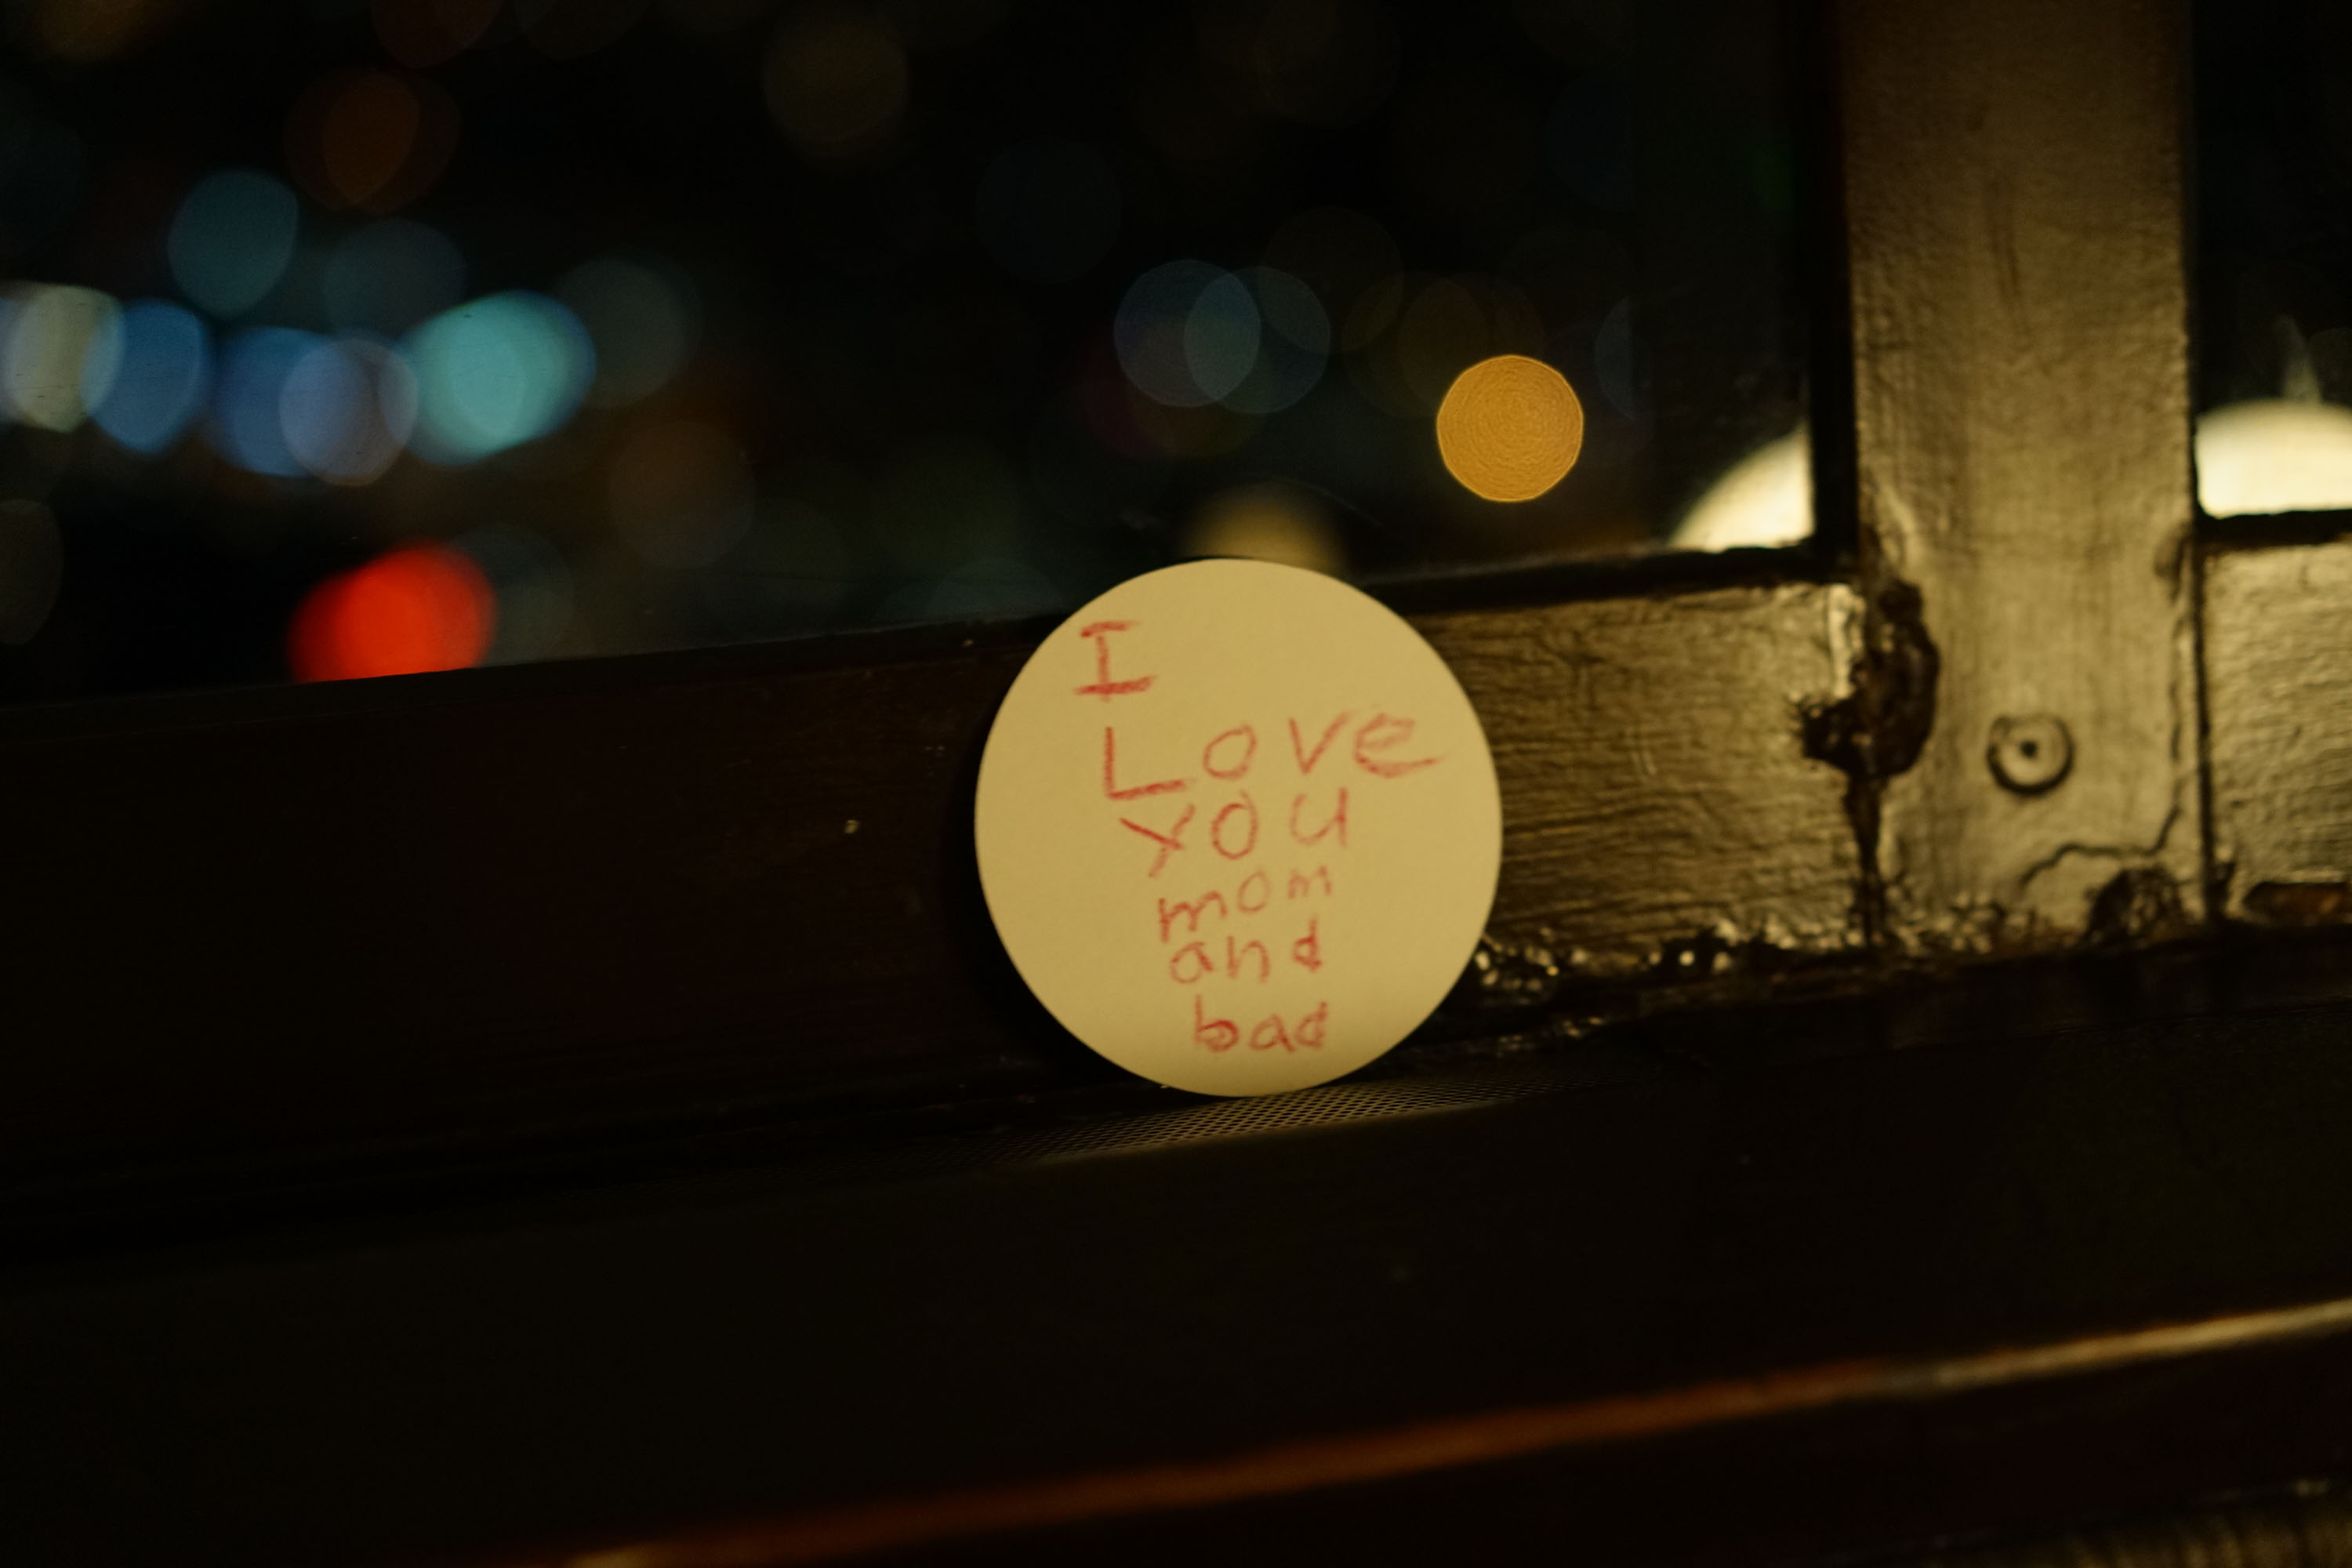 I
Love
you
mom
and
bad